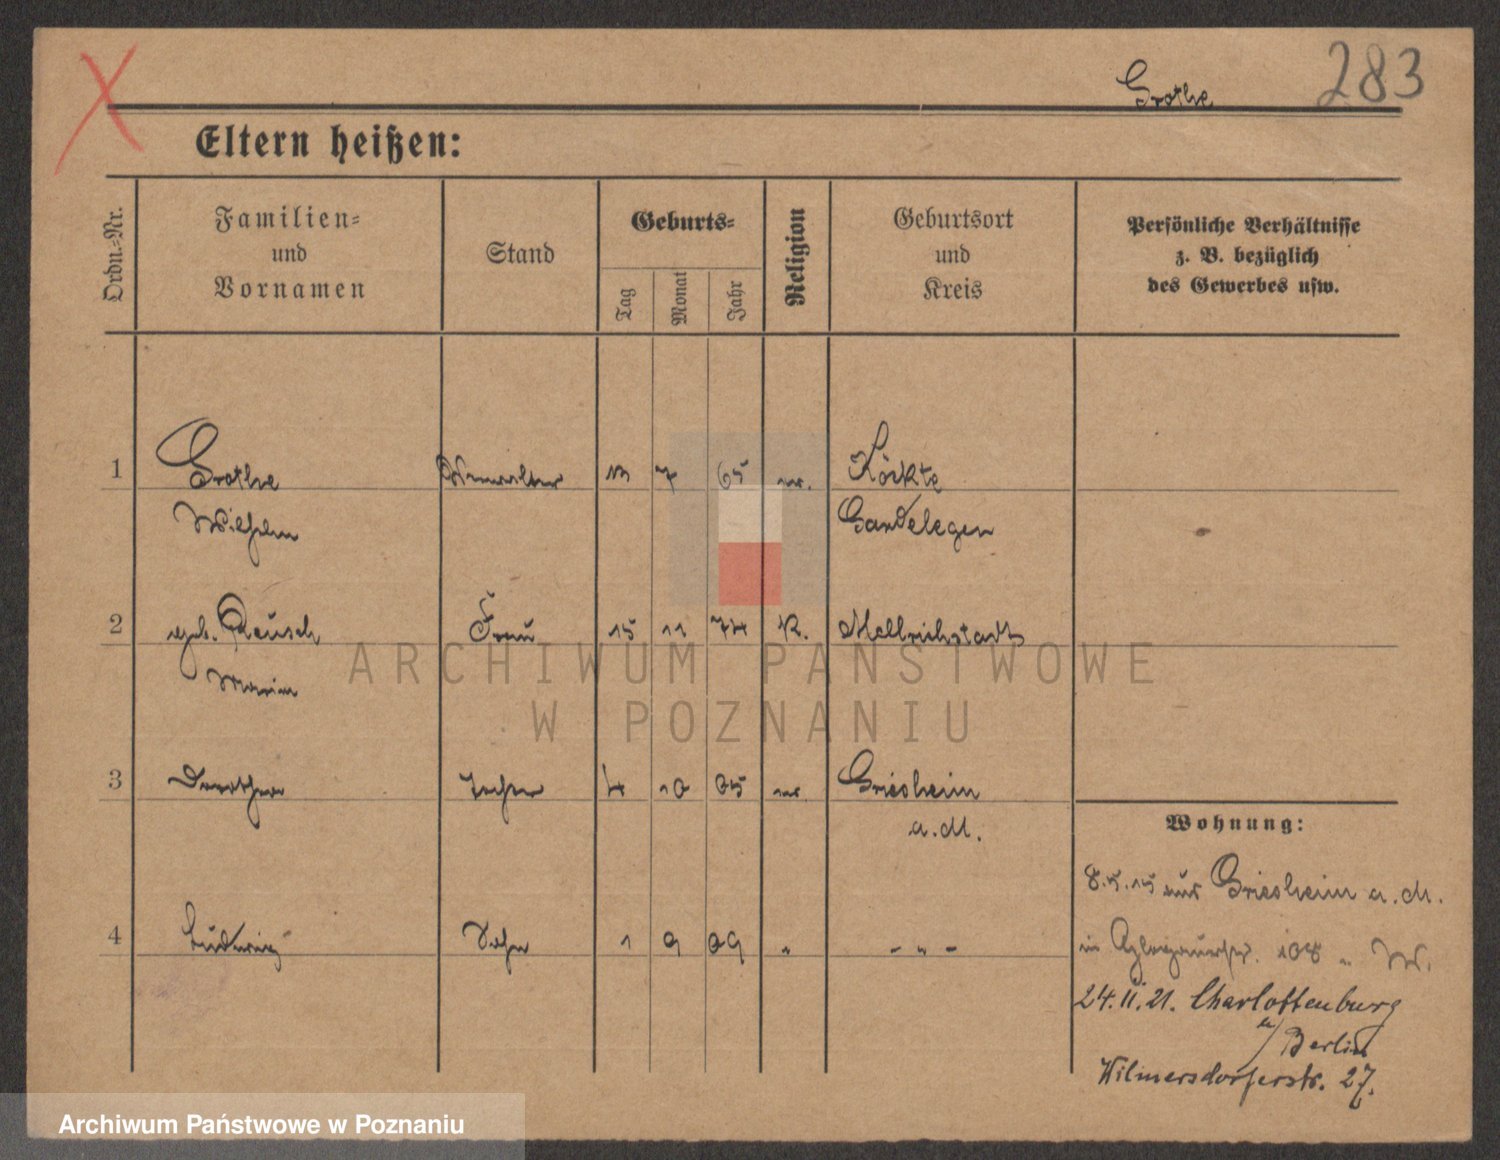 Grothe 283
Eltern heißen:
Ordn.-Nr.
Familien-
und
Vornamen
Stand
Geburts-
Tag
Monat
Jahr
Religion
Geburtsort
und
Kreis
Persönliche Verhältnisse
z. B. bezüglich
des Gewerbes usw.
1 Grothe Verwalter 13 7 65 ev. Köckte
Wilhelm Gardelegen
2 geb. Reusch Frau 15 11 74 K. Mellrichstadt
Maria
3 Dorothea Tochter 4 10 05 ev. Griesheim
a. M.
Wohnung:
8.5.15 aus Griesheim a. M.
4 Ludwig Sohn 1 9 09 " - " -
in 108 W.
24.11.21. Charlottenburg
b/Berlin
Wilmersdorferstr. 27.
ARCHIWUM PAŃSTWOWE
W POZNANIU
Archiwum Państwowe w Poznaniu